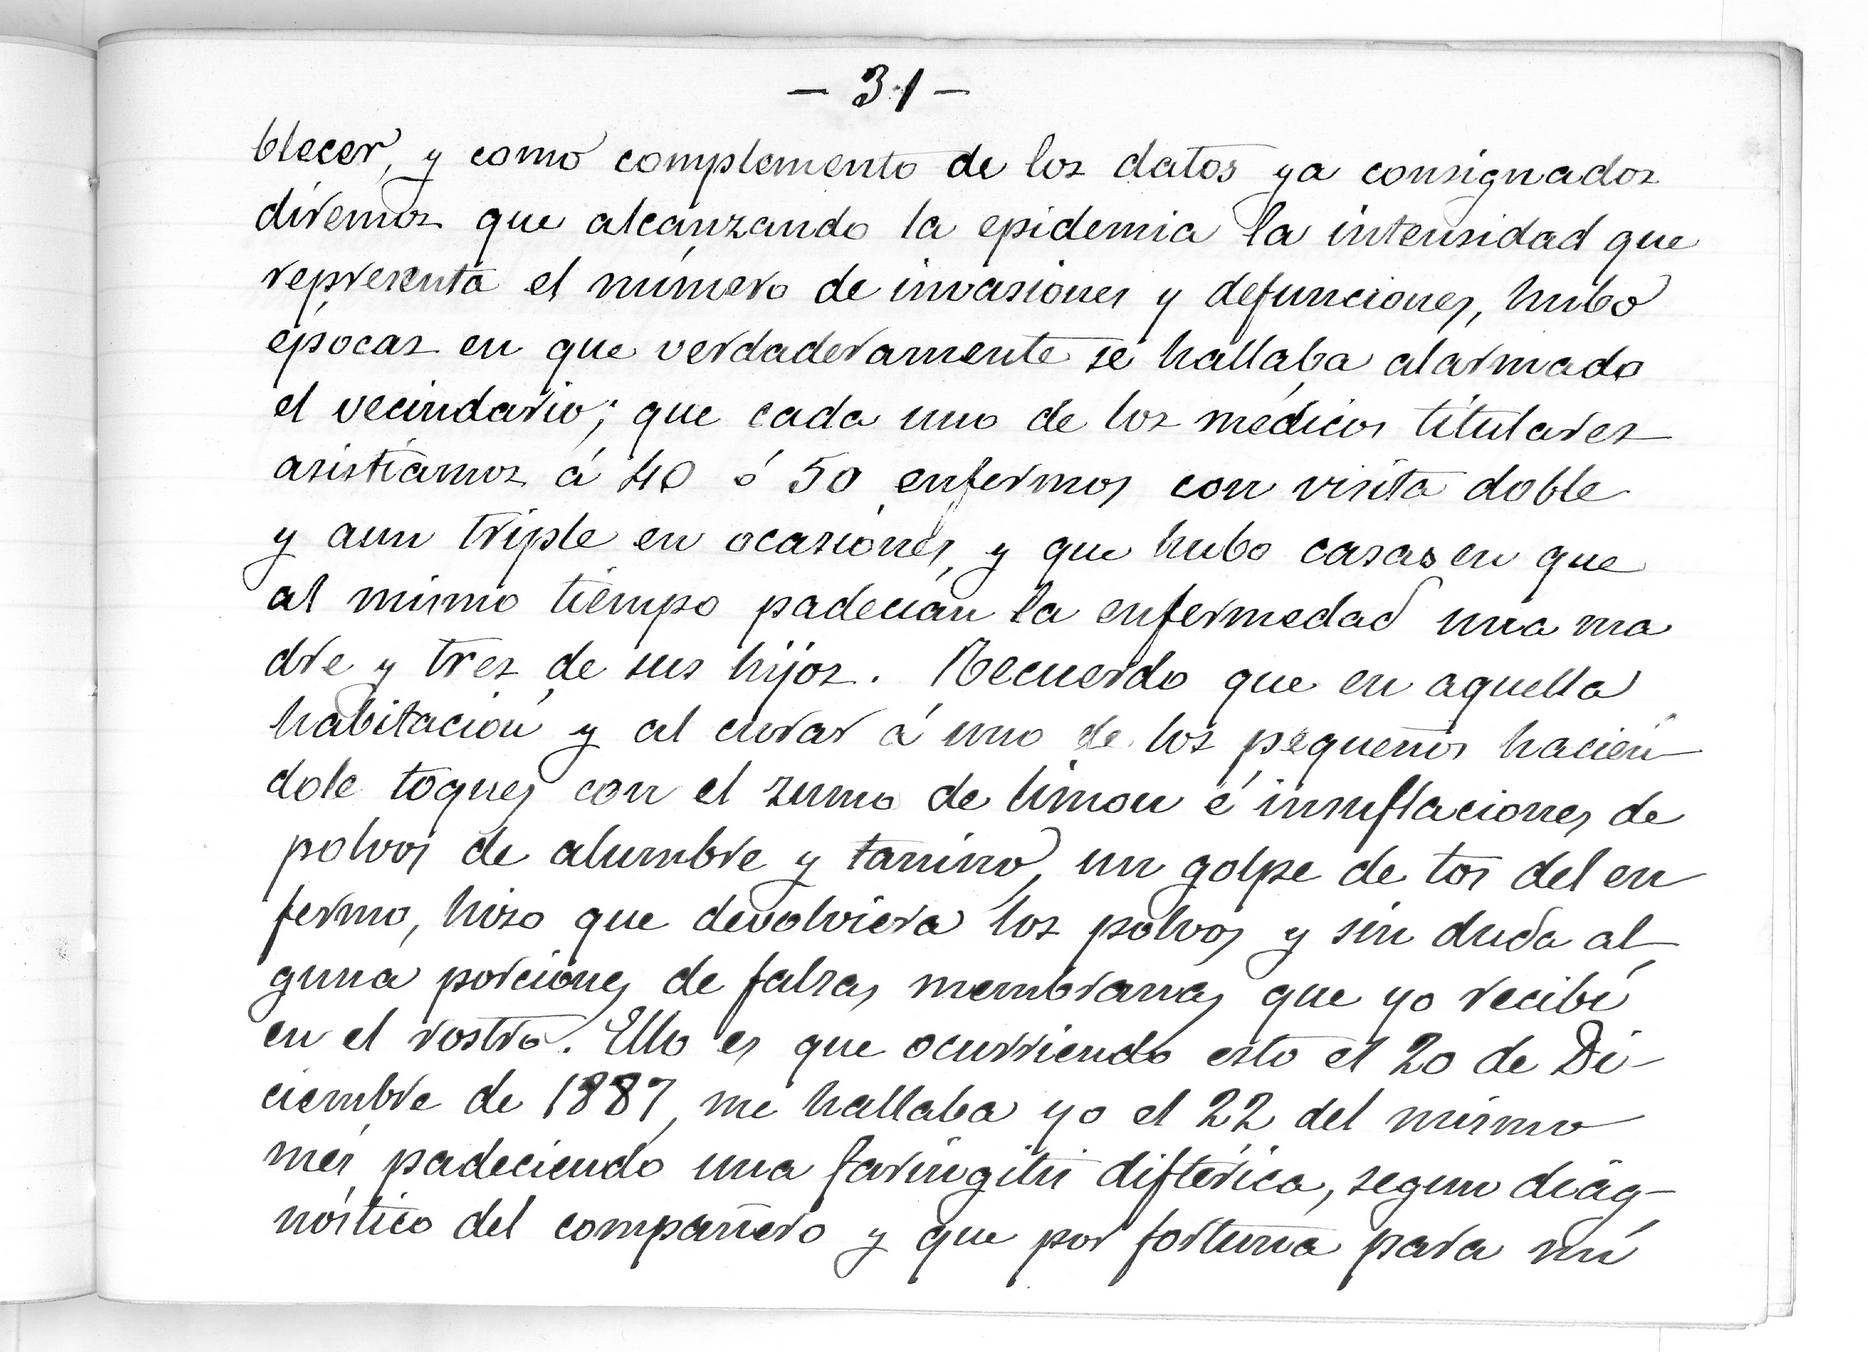 — 31 —
blecer, y como complemento de los datos ya consignados
diremos que alcanzando la epidemia la intensidad que
representa el número de invasiones y defunciones, hubo
épocas en que verdaderamente se hallaba alarmado
el vecindario; que cada uno de los médicos titulares
asistíamos á 40 ó 50 enfermos con visita doble
y aun triple en ocasiones, y que hubo casas en que
al mismo tiempo padecían la enfermedad una ma
dre y tres de sus hijos. Recuerdo que en aquella
habitación y al curar á uno de los pequeños hacién
dole toques con el zumo de limon é insuflaciones de
polvos de alumbre y tanino, un golpe de tos del en
fermo, hizo que devolviera los polvos y sin duda al
guna porciones de falsas membranas que yo recibí
en el rostro. Ello es que ocurriendo esto el 20 de Di-
ciembre de 1887, me hallaba yo el 22 del mismo
mes padeciendo una faringitis diftérica, segun diag-
nóstico del compañero y que por fortuna para mí